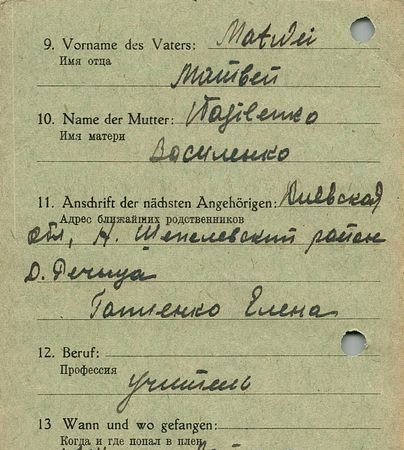 9. Vorname des Vaters: Matvei
Имя отца
Матвей
10. Name der Mutter: Wasilenko
Имя матери
Василенко
11. Anschrift der nächsten Angehörigen: Киевская
Адрес ближайших родственников
обл, Н. Шепелевский район
д. Речица
Гапиенко Елена
12. Beruf:
Профессия
учитель
13 Wann und wo gefangen:
Когда и где попал в плен